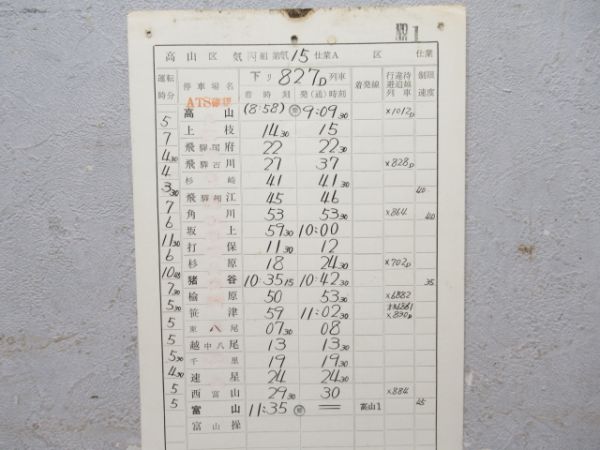 NR 1
高山区 気丙組第気15仕業A 区 仕業
運転時分 停車場名 下り827D列車 着発線 行違待避追越列車 制限速度
ATS確認 着時刻 発(通)時刻
5 高山 (8:58) 9:09 30 ×1012D
7 上枝 14 30 15
4 30 飛騨国府 22 22 30
4 飛騨古川 27 37 ×828D
3 30 杉崎 41 41 30
7 飛騨細江 45 46 40
6 角川 53 53 30 ×864 40
6 坂上 59 30 10:00
11 30 打保 11 30 12
6 杉原 18 24 30 ×702D
10 45 猪谷 10:35 15 10:42 30 35
7 30 楡原 50 53 30 ×6882
5 30 笹津 59 11:02 30 ×830D
5 東八尾 07 30 08
5 越中八尾 13 13 30
5 30 千里 19 19 30
4 30 速星 24 24 30
5 西富山 29 30 30 ×884
5 富山 11:35 = 高山1 45
富山操